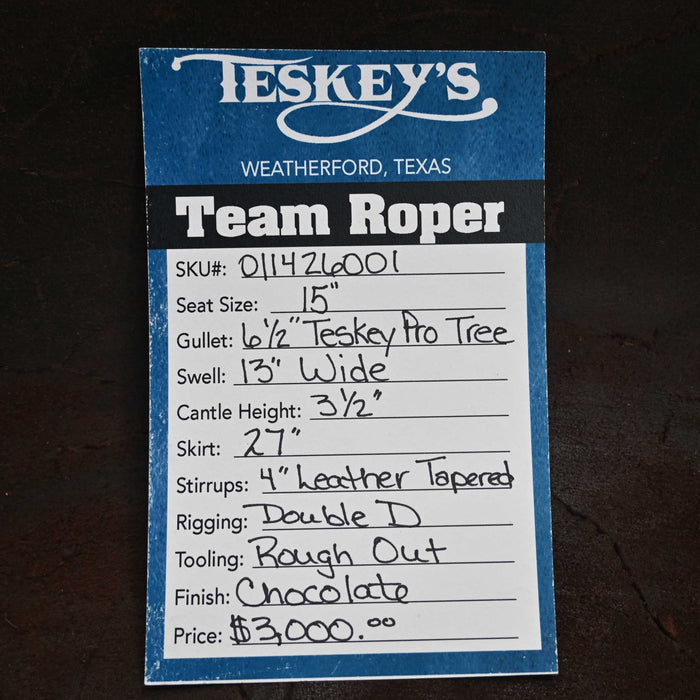 TESKEY'S
WEATHERFORD, TEXAS
Team Roper
SKU#: 011426001
Seat Size: 15"
Gullet: 6 1/2" Teskey Pro Tree
Swell: 13" Wide
Cantle Height: 3 1/2"
Skirt: 27"
Stirrups: 4" Leather Tapered
Rigging: Double D
Tooling: Rough Out
Finish: Chocolate
Price: $3,000.00